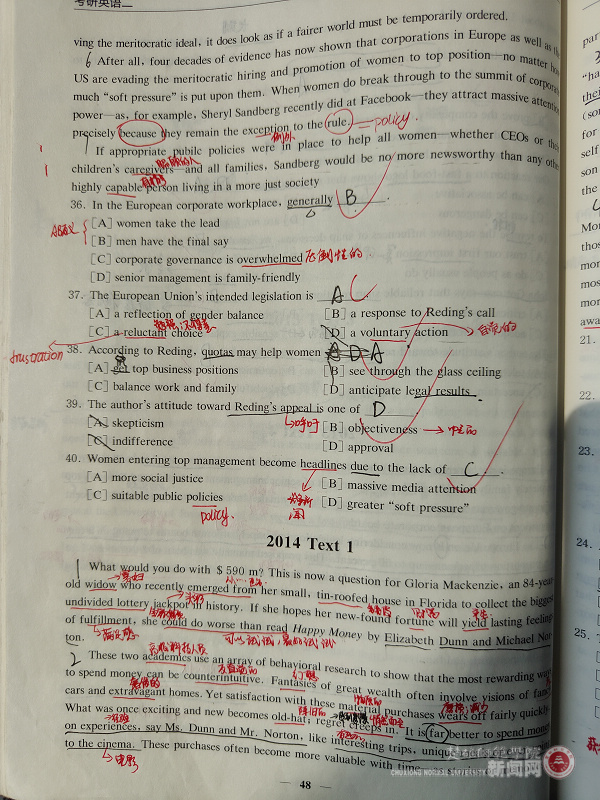 考研英语二
ving the meritocratic ideal, it does look as if a fairer world must be temporarily ordered.
6 After all, four decades of evidence has now shown that corporations in Europe as well as the
US are evading the meritocratic hiring and promotion of women to top position—no matter how
much “soft pressure” is put upon them. When women do break through to the summit of corporate
power—as, for example, Sheryl Sandberg recently did at Facebook—they attract massive attention
precisely because they remain the exception to the rule. = policy.
例外
7 If appropriate pubilc policies were in place to help all women—whether CEOs or their
children's caregivers—and all families, Sandberg would be no more newsworthy than any other
highly capable person living in a more just society
36. In the European corporate workplace, generally B .
[A] women take the lead
[B] men have the final say
[C] corporate governance is overwhelmed 压倒性的
[D] senior management is family-friendly
37. The European Union's intended legislation is A .
[A] a reflection of gender balance
[B] a response to Reding's call
[C] a reluctant choice
[D] a voluntary action → 自愿的
38. According to Reding, quotas may help women A
[A] get top business positions
[B] see through the glass ceiling
[C] balance work and family
[D] anticipate legal results
39. The author's attitude toward Reding's appeal is one of D .
[A] skepticism
呼吁
[B] objectiveness → 中立的
[C] indifference
[D] approval
40. Women entering top management become headlines due to the lack of C .
[A] more social justice
[B] massive media attention
[C] suitable public policies
[D] greater “soft pressure”
policy.
2014 Text 1
1 What would you do with $ 590 m? This is now a question for Gloria Mackenzie, an 84-year
寡妇
old widow who recently emerged from her small, tin-roofed house in Florida to collect the biggest
undivided lottery jackpot in history. If she hopes her new-found fortune will yield lasting feelings
of fulfillment, she could do worse than read Happy Money by Elizabeth Dunn and Michael Nor-
ton.
满足感
可以试试,最好试试
2 These two academics use an array of behavioral research to show that the most rewarding ways
to spend money can be counterintuitive. Fantasies of great wealth often involve visions of fancy
cars and extravagant homes. Yet satisfaction with these material purchases wears off fairly quickly.
What was once exciting and new becomes old-hat; regret creeps in. It is far better to spend money
on experiences, say Ms. Dunn and Mr. Norton, like interesting trips, unique
to the cinema. These purchases often become more valuable with time
电影
新闻网
CHUXIONG NORMAL UNIVERSITY
— 48 —
21.
22.
23.
24.
25.